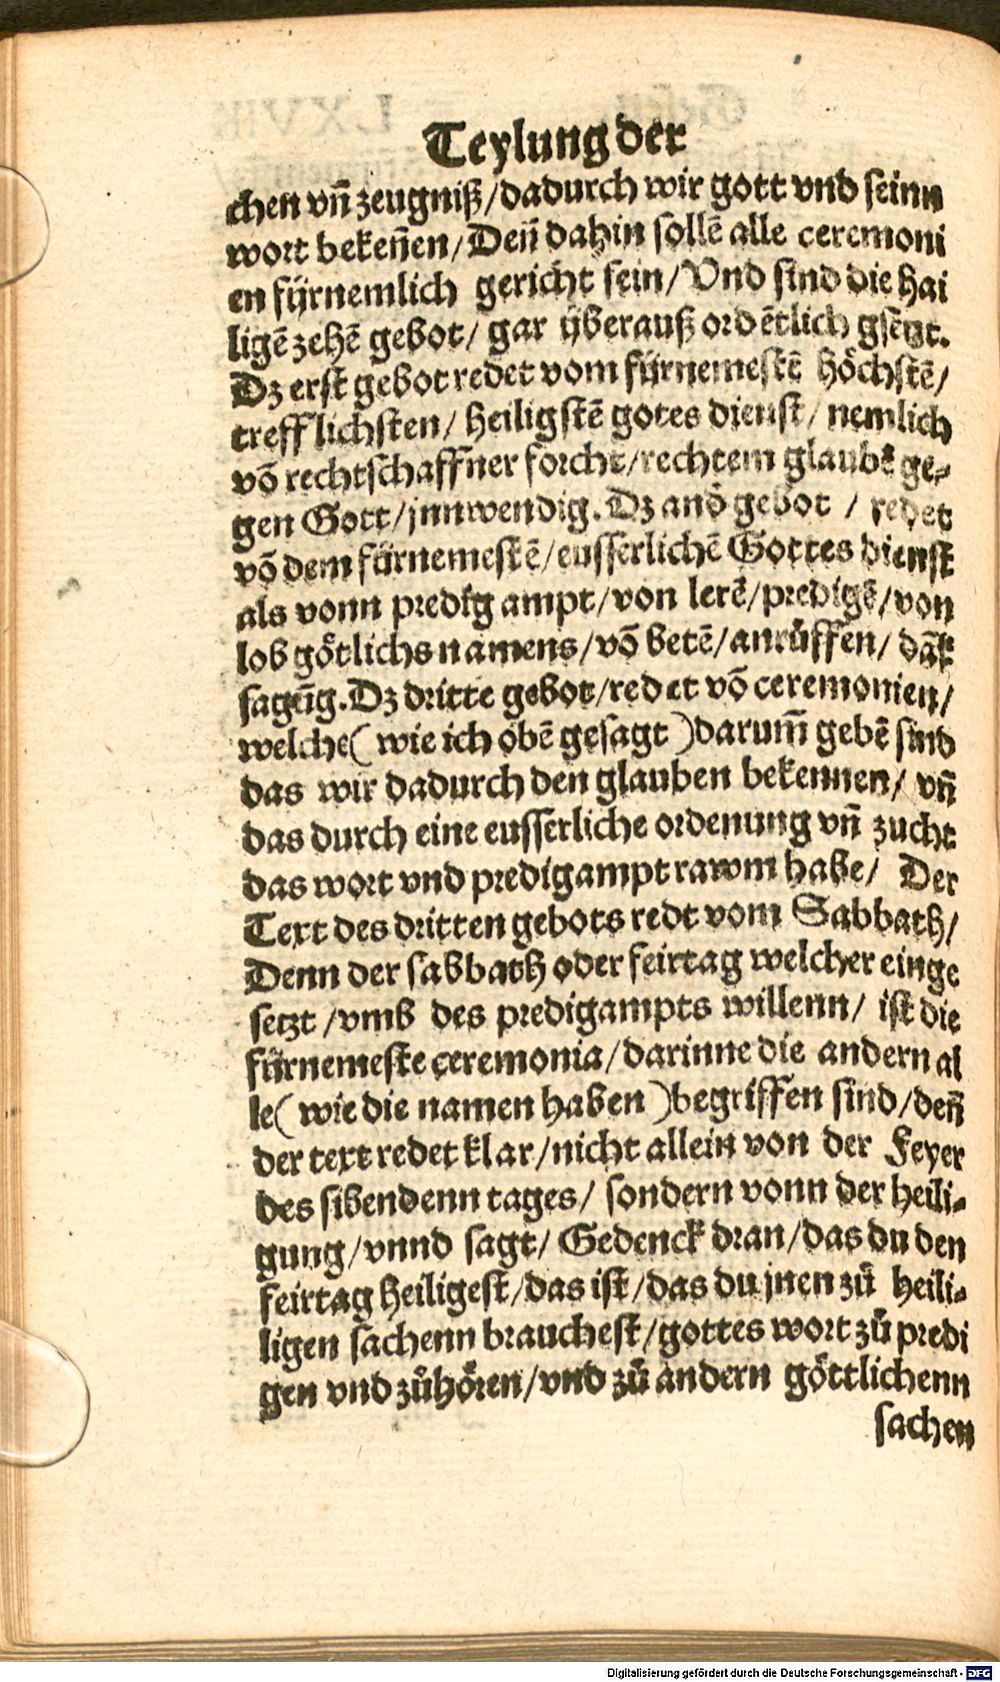 Teylung der
chen vn̄ zeugniß/dadurch wir gott vnd seinn
wort bekeñen/Deñ dahin sollē alle ceremoni
en fürnemlich gericht sein/Vnd sind die hai
ligē zehē gebot/ gar überauß ordētlich gsētzt.
Dz erst gebot redet vom fürnemestē höchstē/
trefflichsten/ heiligstē gotes dienst/ nemlich
võ rechtschaffner forcht/rechtem glaubē ge-
gen Gott/jnnwendig. Dz and̄ gebot / redet
võ dem fürnemestē/eusserlichē Gottes dienst
als vonn predig ampt/von lerē/predigē/von
lob götlichs namens/võ betē/anrüffen/ dāk
sagūg. Dz dritte gebot/redet võ ceremonien/
welche( wie ich obē gesagt )darum̄ gebē sind
das wir dadurch den glauben bekennen/ vn̄
das durch eine eusserliche ordenung vn̄ zucht
das wort vnd predigampt rawm habe/ Der
Text des dritten gebots redt vom Sabbath/
Denn der sabbath oder feirtag welcher einge
setzt /vmb des predigampts willenn/ ist die
fürnemeste ceremonia/darinne die andern al
le( wie die namen haben )begriffen sind/deñ
der text redet klar/nicht allein von der Feyer
des sibendenn tages/ sondern vonn der heili-
gung/vnnd sagt/ Gedenck dran/das du den
feirtag heiligest/das ist/das du jnen zů heili-
ligen sachenn brauchest/gottes wort zů predi
gen vnd zůhören/vnd zů andern göttlichenn
sachen
Digitalisierung gefördert durch die Deutsche Forschungsgemeinschaft - DFG